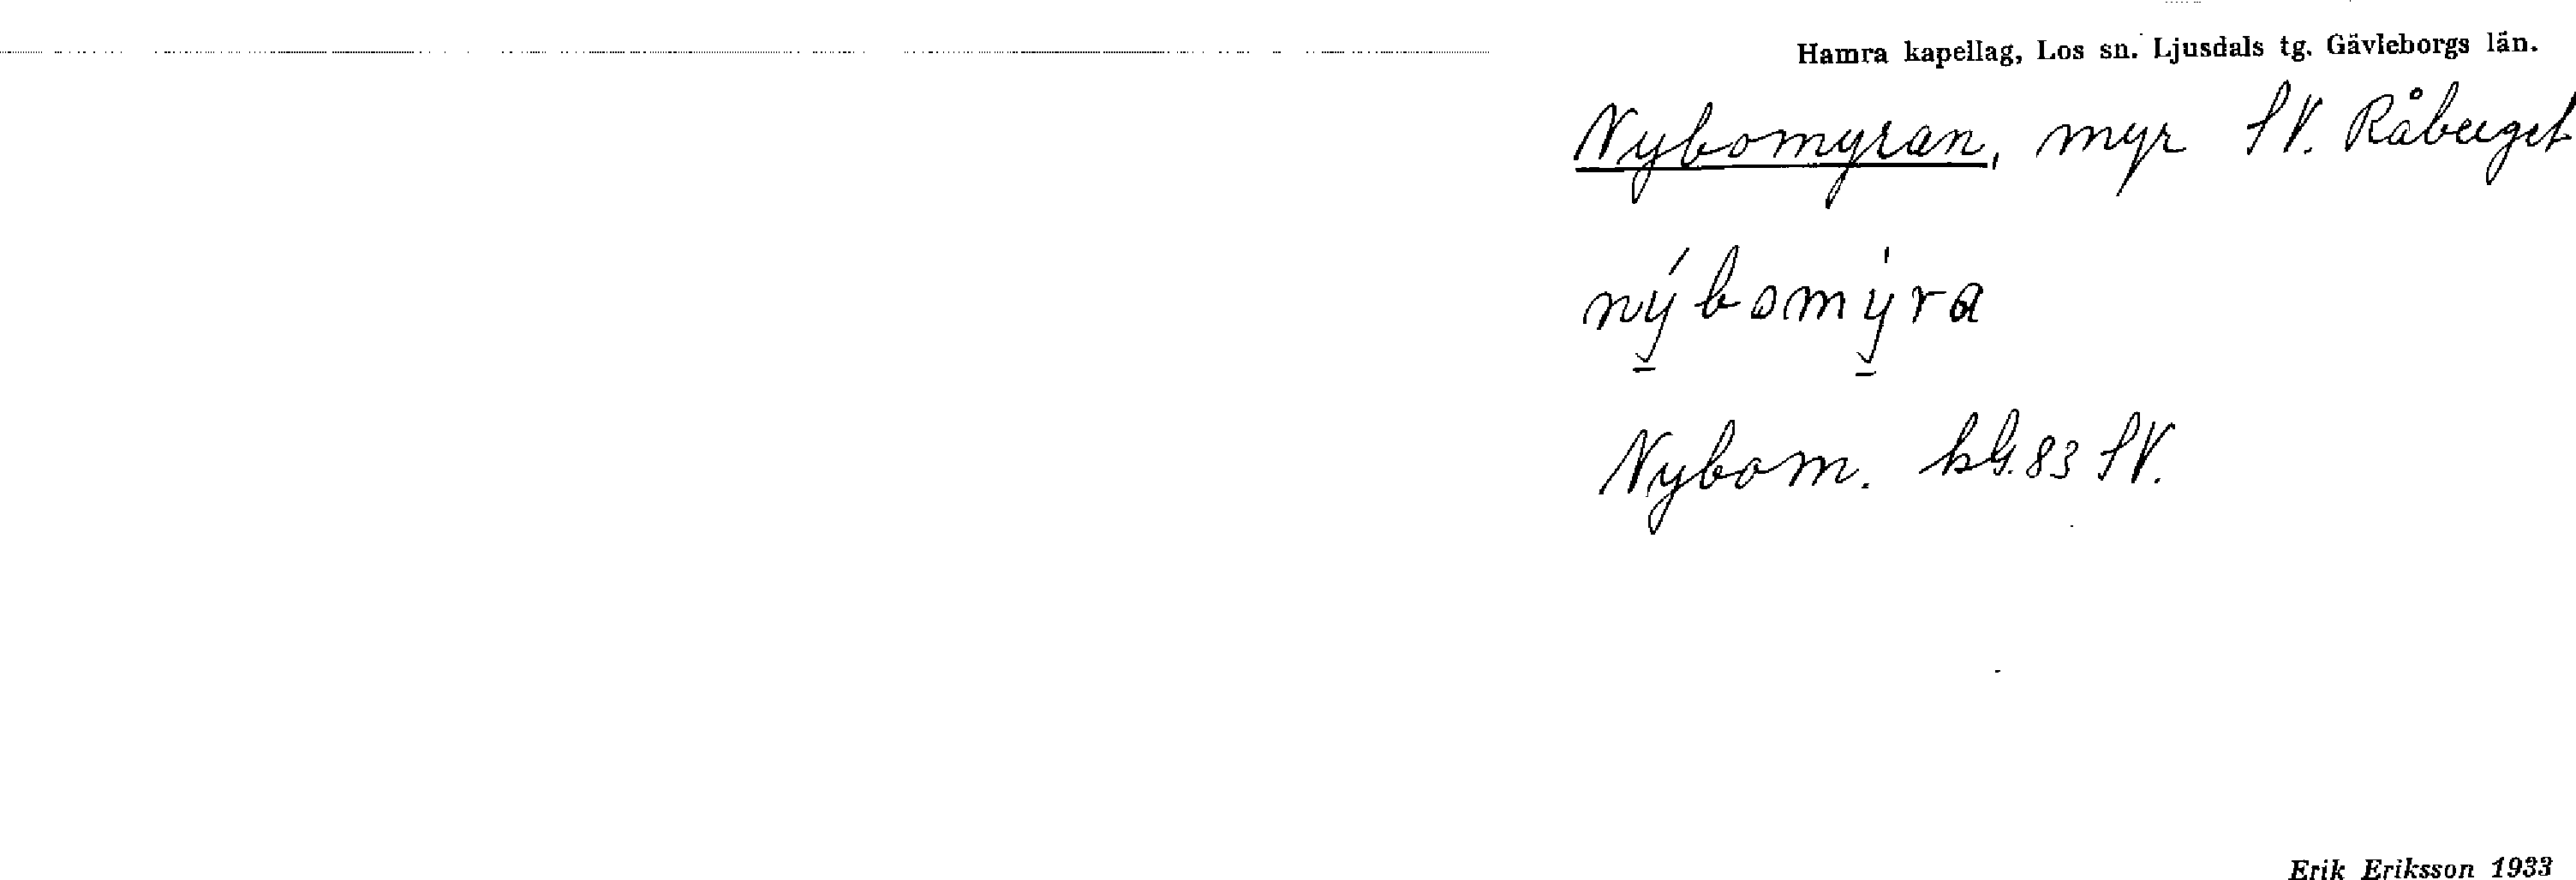 Hamra kapellag, Los sn. Ljusdals tg. Gävleborgs län.
Nybomyran, myr SV. Råberget
nýbomýra
Nybom. kbl. 83 SV.
Erik Eriksson 1933